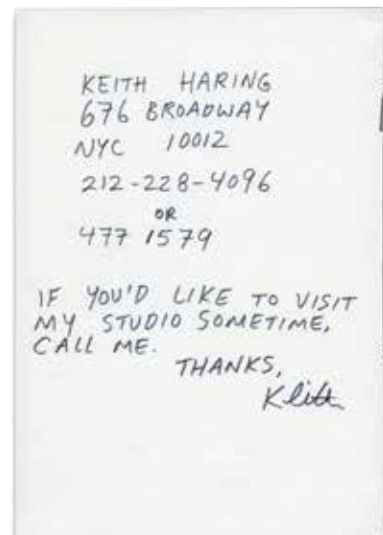 KEITH HARING
676 BROADWAY
NYC 10012
212-228-4096
OR
477 1579
IF YOU'D LIKE TO VISIT
MY STUDIO SOMETIME,
CALL ME.
THANKS,
Keith